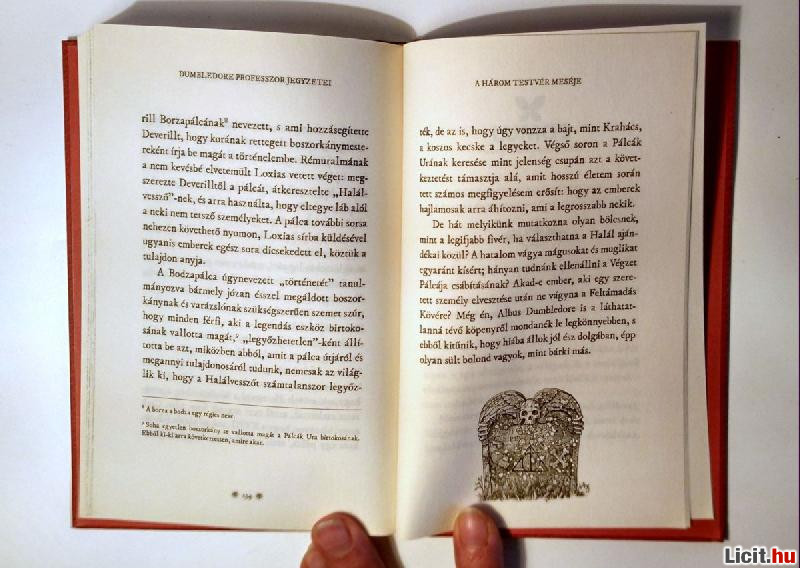 DUMBLEDORE PROFESSZOR JEGYZETEI
rill Borzapálcának⁸ nevezett, s ami hozzásegítette
Deverillt, hogy korának rettegett boszorkánymeste-
reként írja be magát a történelembe. Rémuralmának
a nem kevésbé elvetemült Loxias vetett véget: meg-
szerezte Deverilltől a pálcát, átkeresztelte „Halál-
vessző”-nek, és arra használta, hogy eltegye láb alól
a neki nem tetsző személyeket. A pálca további sorsa
nehezen követhető nyomon, Loxias sírba küldésével
ugyanis emberek egész sora dicsekedett el, köztük a
tulajdon anyja.
A Bodzapálca úgynevezett „történetét” tanul-
mányozva bármely józan ésszel megáldott boszor-
kánynak és varázslónak szükségszerűen szemet szúr,
hogy minden férfi, aki a legendás eszköz birtoko-
sának vallotta magát,⁹ „legyőzhetetlen”-ként állí-
totta be azt, miközben abból, amit a pálca útjáról és
megannyi tulajdonosáról tudunk, nemesak az világ-
lik ki, hogy a Halálvesszőt számtalanszor legyőz-
⁸ A borza a bodza egy régies neve.
⁹ Soha egyetlen boszorkány se vallotta magát a Pálcák Ura birtokosának.
Ebből ki-ki arra következtessen, amire akar.
134
A HÁROM TESTVÉR MESÉJE
ték, de az is, hogy úgy vonzza a bajt, mint Krahács,
a koszos kecske a legyeket. Végső soron a Pálcák
Urának keresése mint jelenség csupán azt a követ-
keztetést támasztja alá, amit hosszú életem során
tett számos megfigyelésem erősít: hogy az emberek
hajlamosak arra áhítozni, ami a legrosszabb nekik.
De hát melyikünk mutatkozna olyan bölcsnek,
mint a legifjabb fivér, ha választhatna a Halál aján-
dékai közül? A hatalom vágya mágusokat és muglikat
egyaránt kísért; hányan tudnánk ellenállni a Végzet
Pálcája csábításának? Akad-e ember, aki egy szere-
tett személy elvesztése után ne vágyna a Feltámadás
Kövére? Még én, Albus Dumbledore is a láthatat-
lanná tévő köpenyről mondanék le legkönnyebben, s
ebből kitűnik, hogy hiába állok jól ész dolgában, épp
olyan sült bolond vagyok, mint bárki más.
Licit.hu